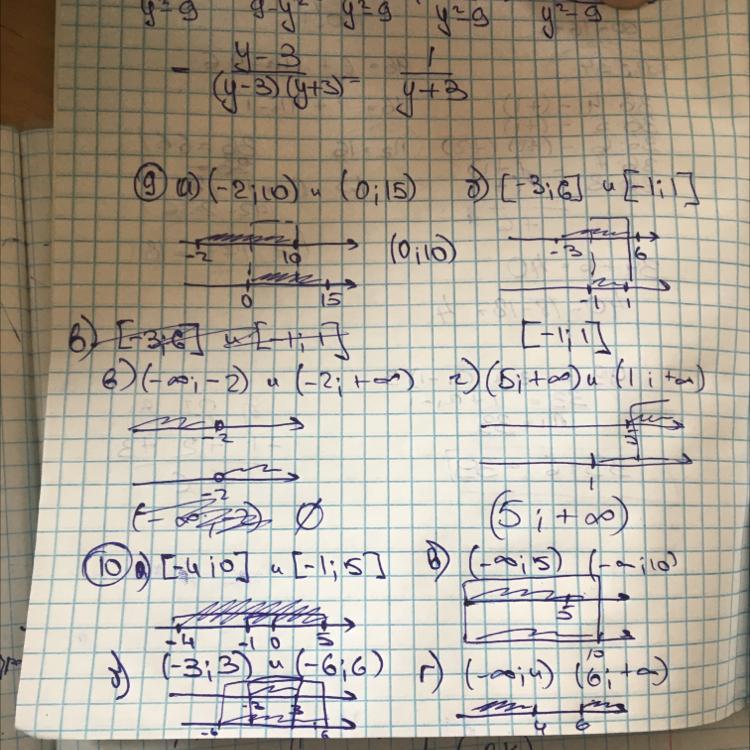 y²-9 9-y² y²-9 y²-9 y²-9
= y-3 / (y-3)(y+3) = 1 / y+3
⑨ а) (-2;10) и (0;15) б) [-3;6] и [-1;1]
-2 10 (0;10) -3 6
0 15 -1 1
в) [-3;6] и [-1;1] [-1;1]
в) (-∞;-2) и (-2;+∞) г) (5;+∞) и (1;+∞)
-2 5
-2 1
(-∞;-2) ∅ (5;+∞)
⑩ а) [-4;0] и [-1;5] в) (-∞;5) (-∞;10)
-4 -1 0 5 5
10
б) (-3;3) и (-6;6) г) (-∞;4) (6;+∞)
-3 3 4 6
-6 6